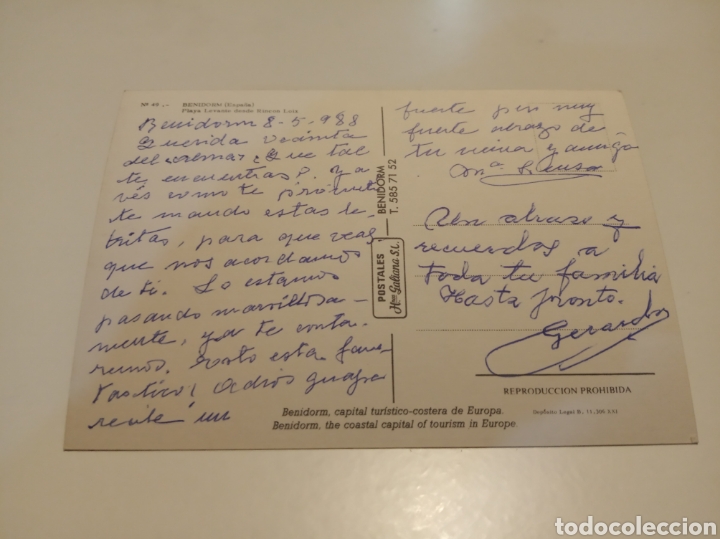 Nº 45.-   BENIDORM (España)
Playa Levante desde Rincon Loix
Benidorm 8-5-988
Querida Vecinita
del ¿Que tal
te encuentras?. Ya
ves como te prometi
te mando estas le-
tritas, para que veas
que nos acordamos
de ti. Lo estamos
pasando marvillosa-
mente, ya te conta-
remos. Esto esta fan-
tastico! Adios guapa
recibe un
fuerte pero muy
fuerte abrazo de
tu vecina y amiga
Mª
Un abrazo y
recuerdos a
toda tu familia
Hasta pronto.
Gerardo
POSTALES
Hnos Galiana S.L.
BENIDORM
T. 585 71 52
REPRODUCCION PROHIBIDA
Depósito Legal B.
Benidorm, capital turístico-costera de Europa.
Benidorm, the coastal capital of tourism in Europe.
todocoleccion